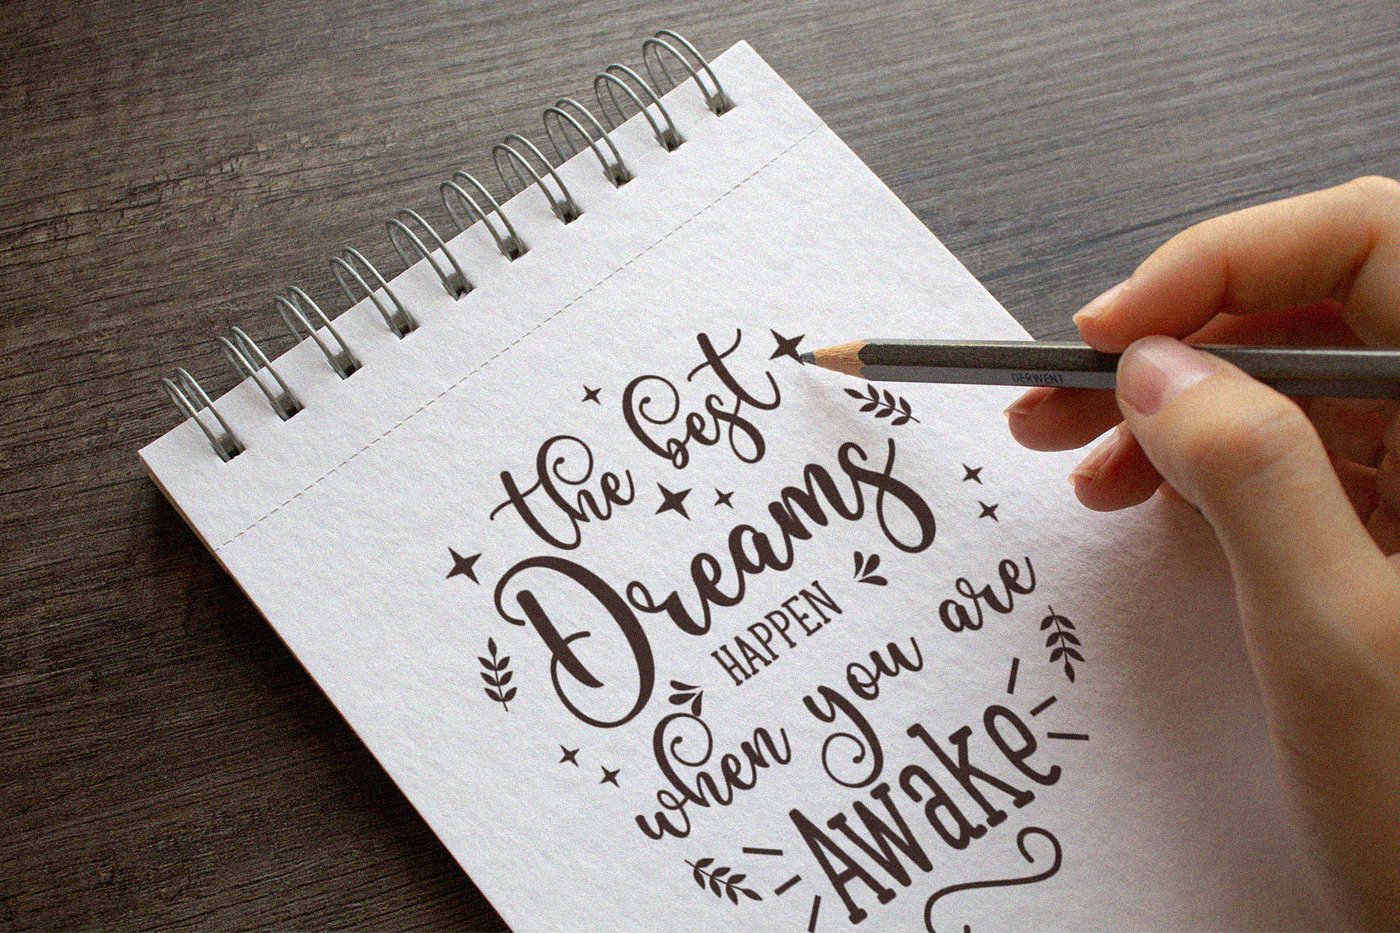 the best
Dreams
HAPPEN
when you are
Awake
DERWENT